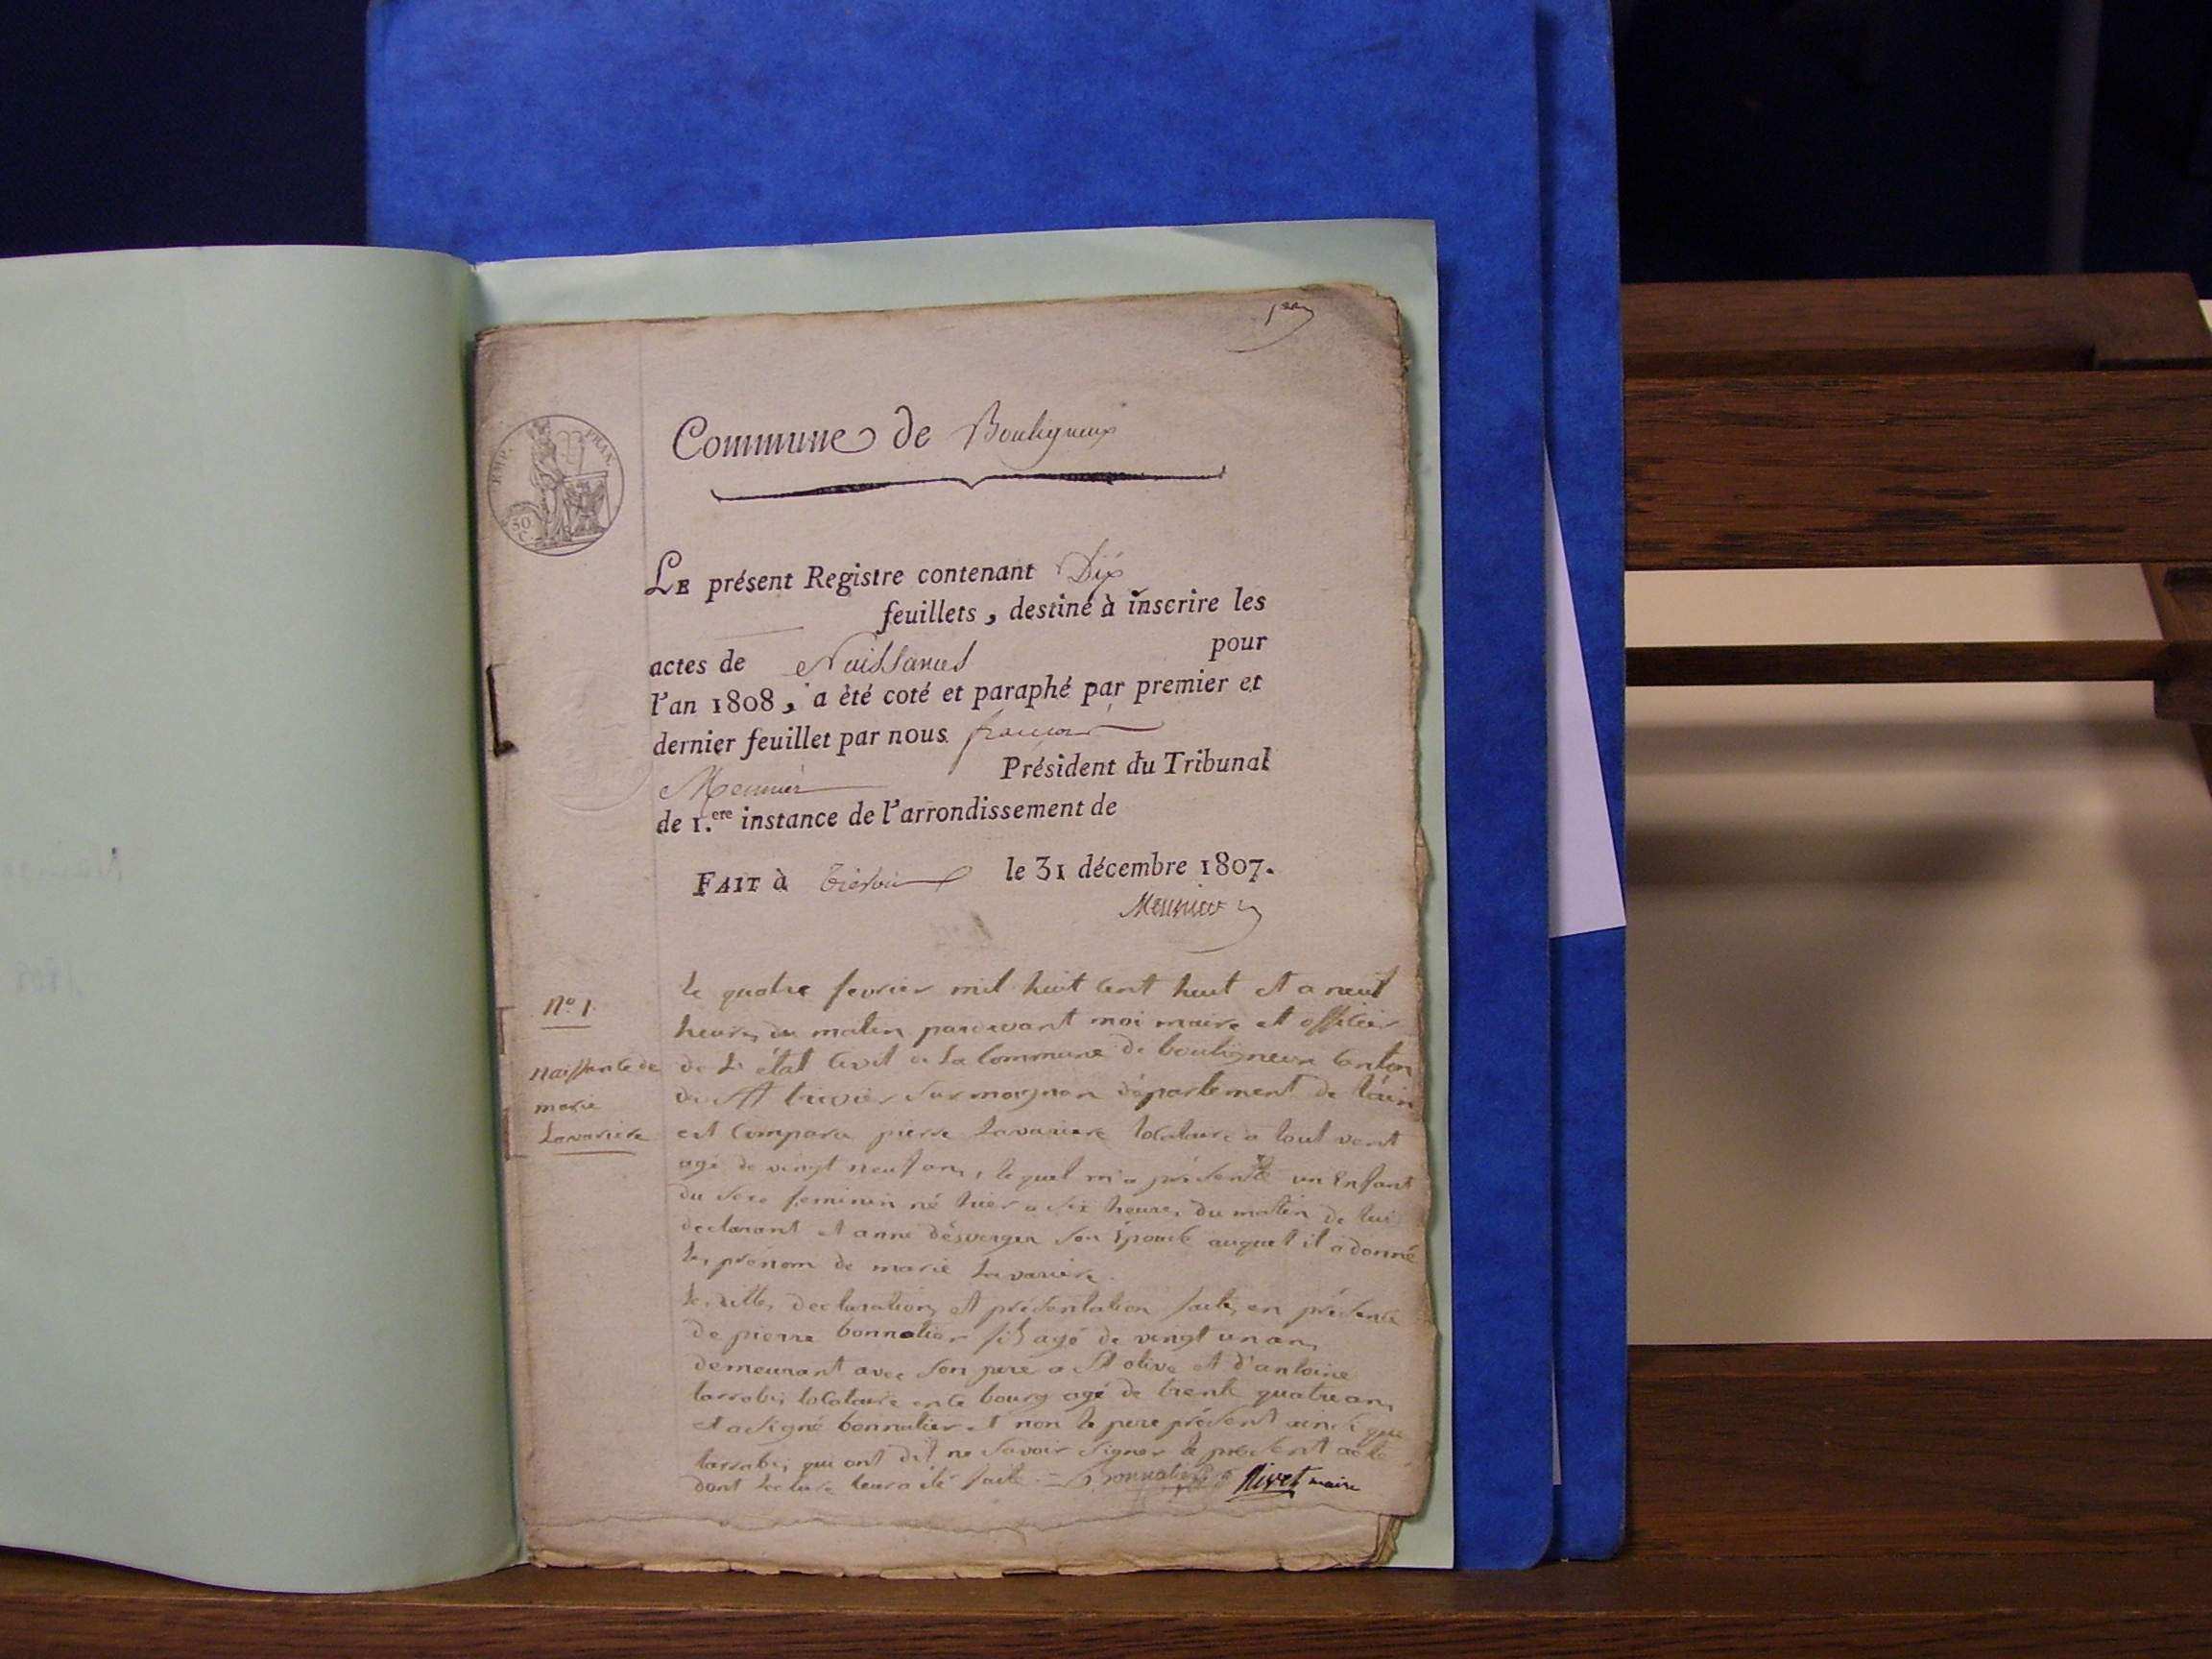 1er
EMP. FRAN.
50 C.
Commune de Bouligneux
LE présent Registre contenant Dix
feuillets, destiné à inscrire les
actes de Naissances pour
l'an 1808, a été coté et paraphé par premier et
dernier feuillet par nous françois
Meunier Président du Tribunal
de 1.ere instance de l'arrondissement de
FAIT à Trévoux le 31 décembre 1807.
Meunier
N° 1
naissance de
marie
Lavariere
le quatre fevrier mil huit cent huit et a neuf
heures du matin pardevant moi maire et officier
de L'état Civil de La Commune de bouligneux Canton
de St trivier Sur moignan département de l'ain
est Comparu pierre Lavariere locataire a tout vent
agé de vingt neuf ans, lequel m'a présenté un Enfant
du sexe feminin né hier a six heures du matin de lui
declarant et anne désverger Son Épouse auquel il a donné
les prénom de marie Lavariere.
Les dittes declarations et présentation faites en présence
de pierre bonnatier fils agé de vingt un ans
demeurant avec Son pere a St olive et d'antoine
larrobis locataire en ce bourg agé de trente quatre ans
et a Signé bonnatier et non le pere présent ainsi que
larrobis qui ont dit ne Savoir Signer le présent acte
dont Lecture leur a été faite. = Bonnatier Nivet maire